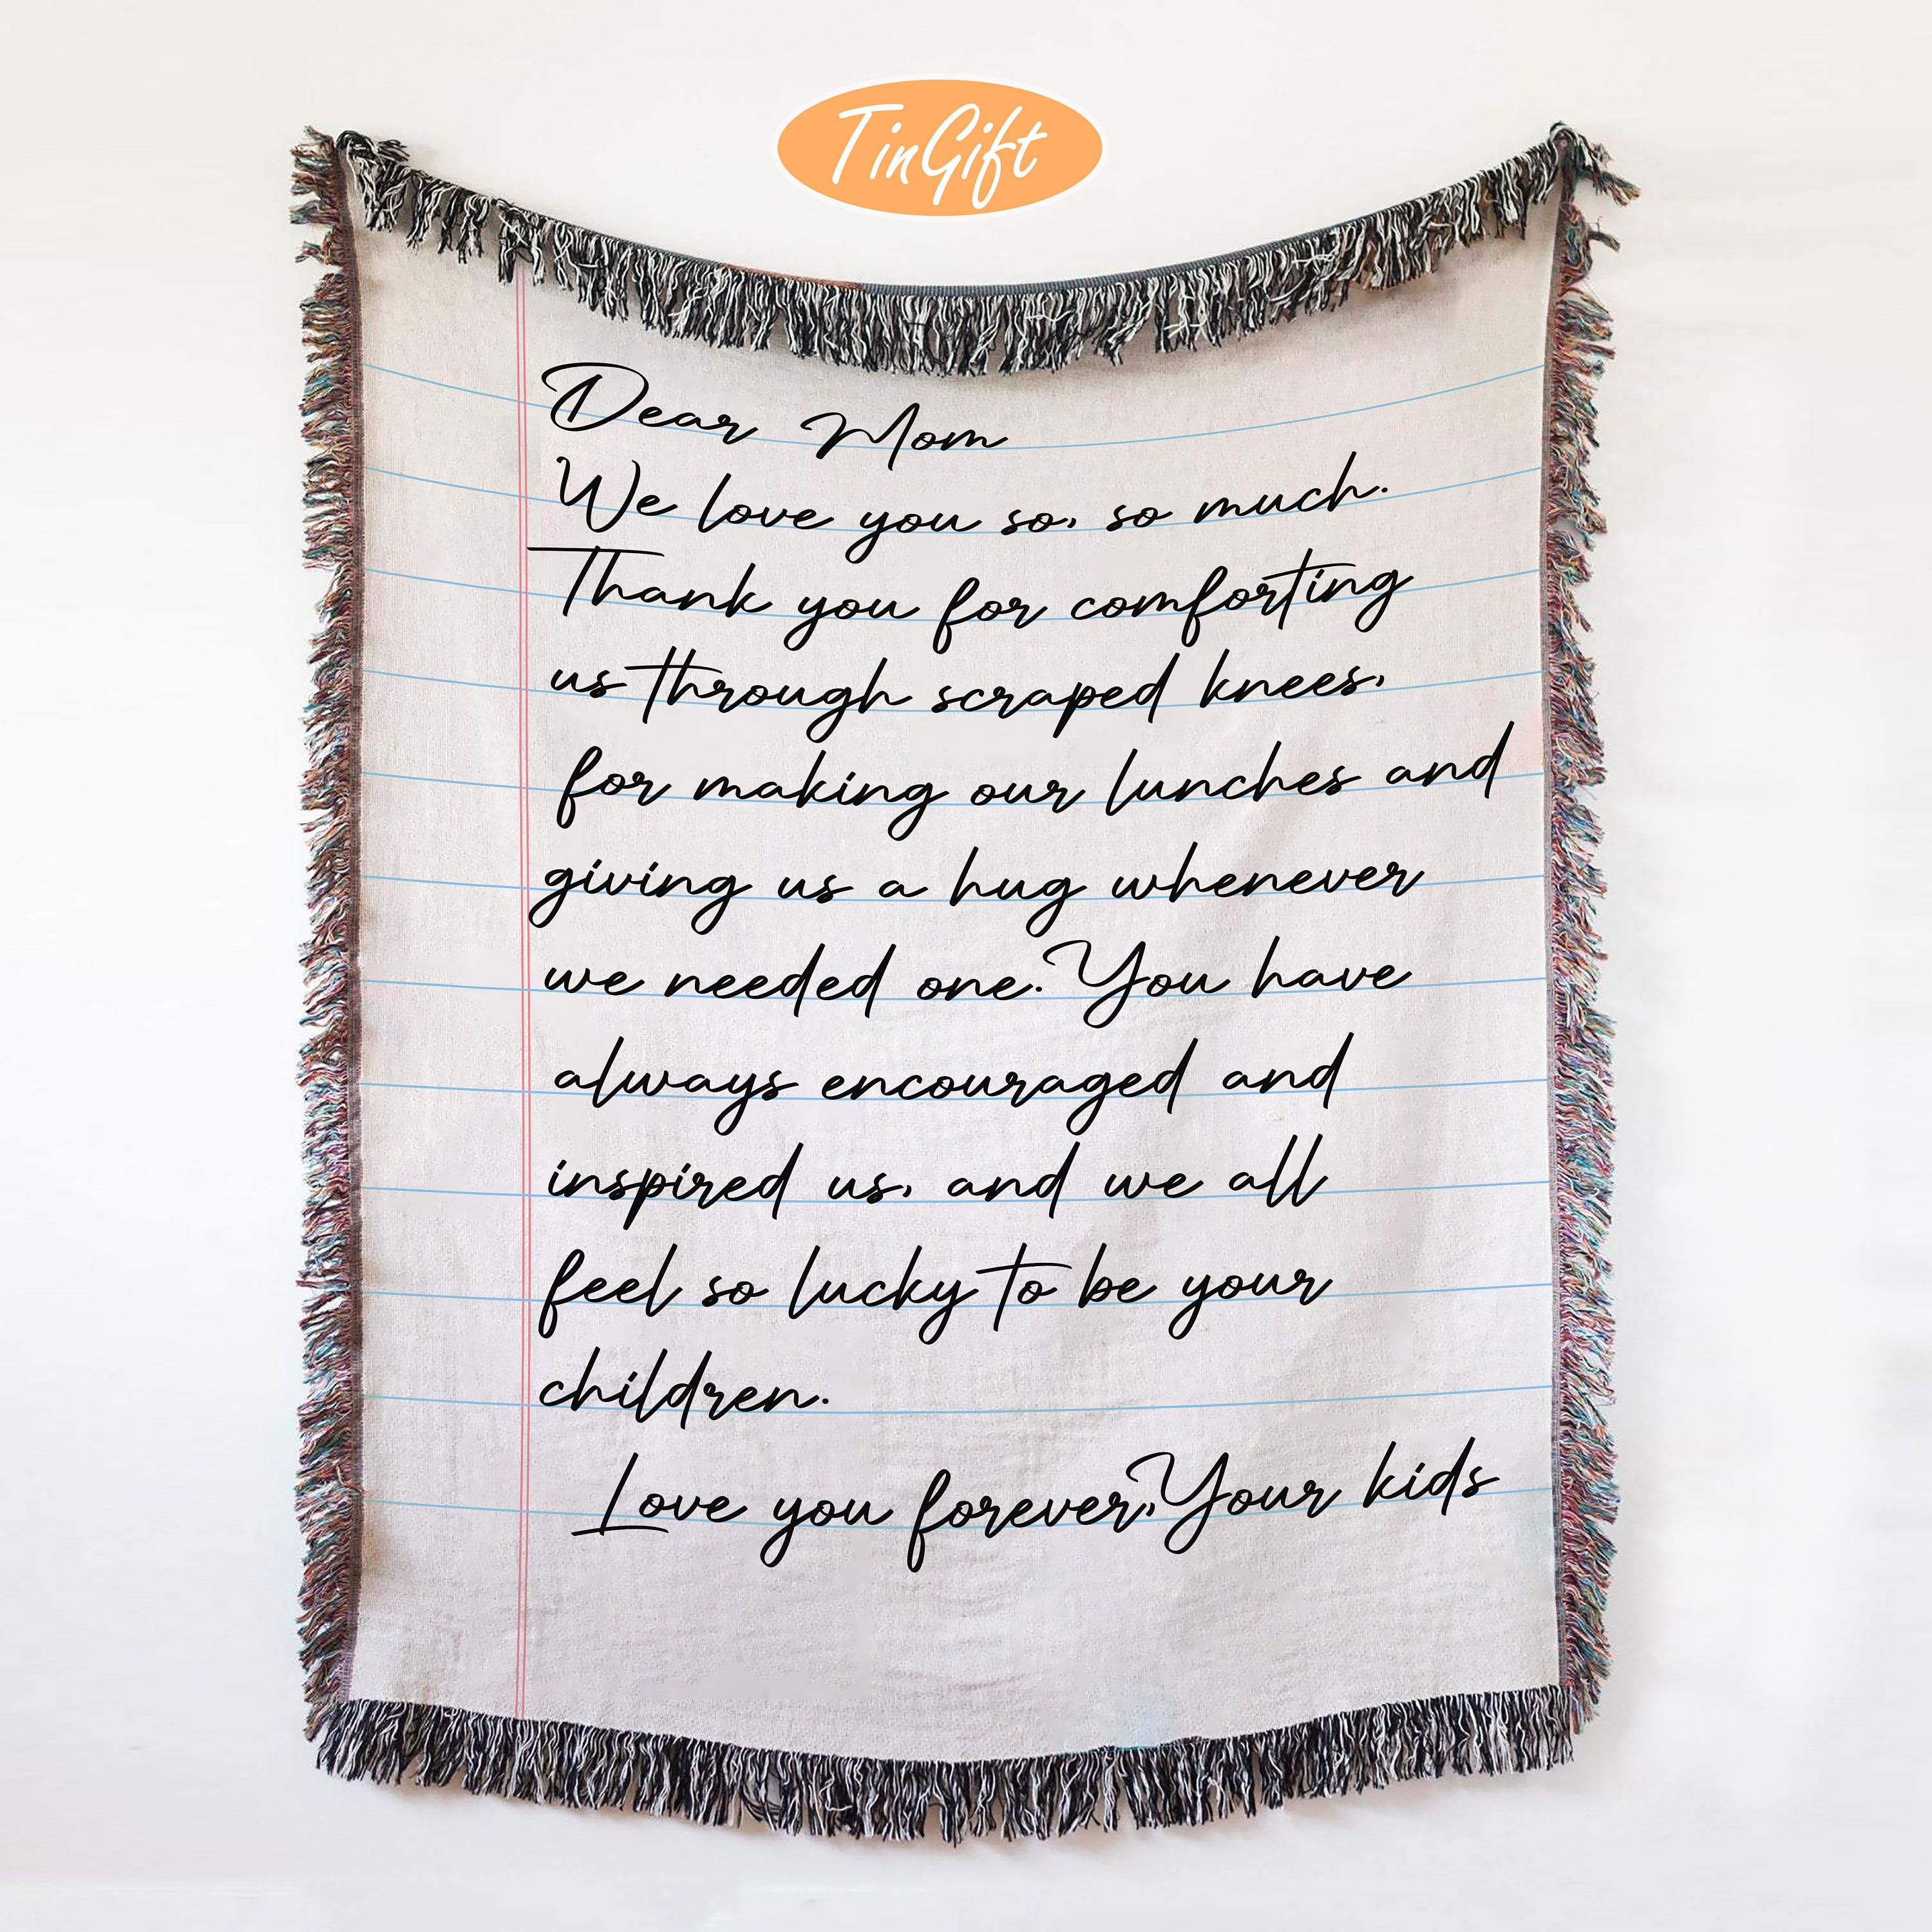 TinGift
Dear Mom
We love you so, so much.
Thank you for comforting
us through scraped knees,
for making our lunches and
giving us a hug whenever
we needed one. You have
always encouraged and
inspired us, and we all
feel so lucky to be your
children.
Love you forever, Your kids